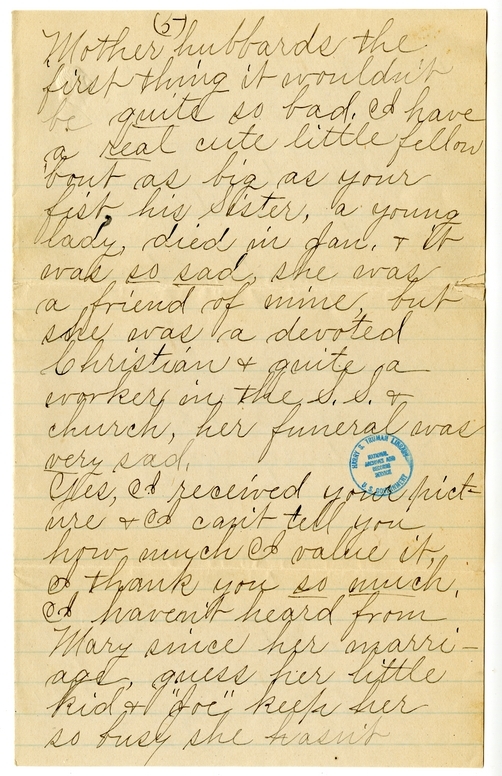 (5)
Mother hubbards the
first thing it wouldn't
be quite so bad. I have
a real cute little fellow
'bout as big as your
fist, his Sister, a young
lady, died in Jan. & it
was so sad, she was
a friend of mine, but
she was a devoted
Christian & quite a
worker in the S. S. &
church, her funeral was
very sad.
HARRY S. TRUMAN LIBRARY
NATIONAL
ARCHIVES AND
RECORDS
SERVICE
U.S. GOVERNMENT
Yes, I received your pict-
ure & I can't tell you
how much I value it,
I thank you so much.
I haven't heard from
Mary since her marri-
age, guess her little
kid & "Joe" keep her
so busy she hasn't